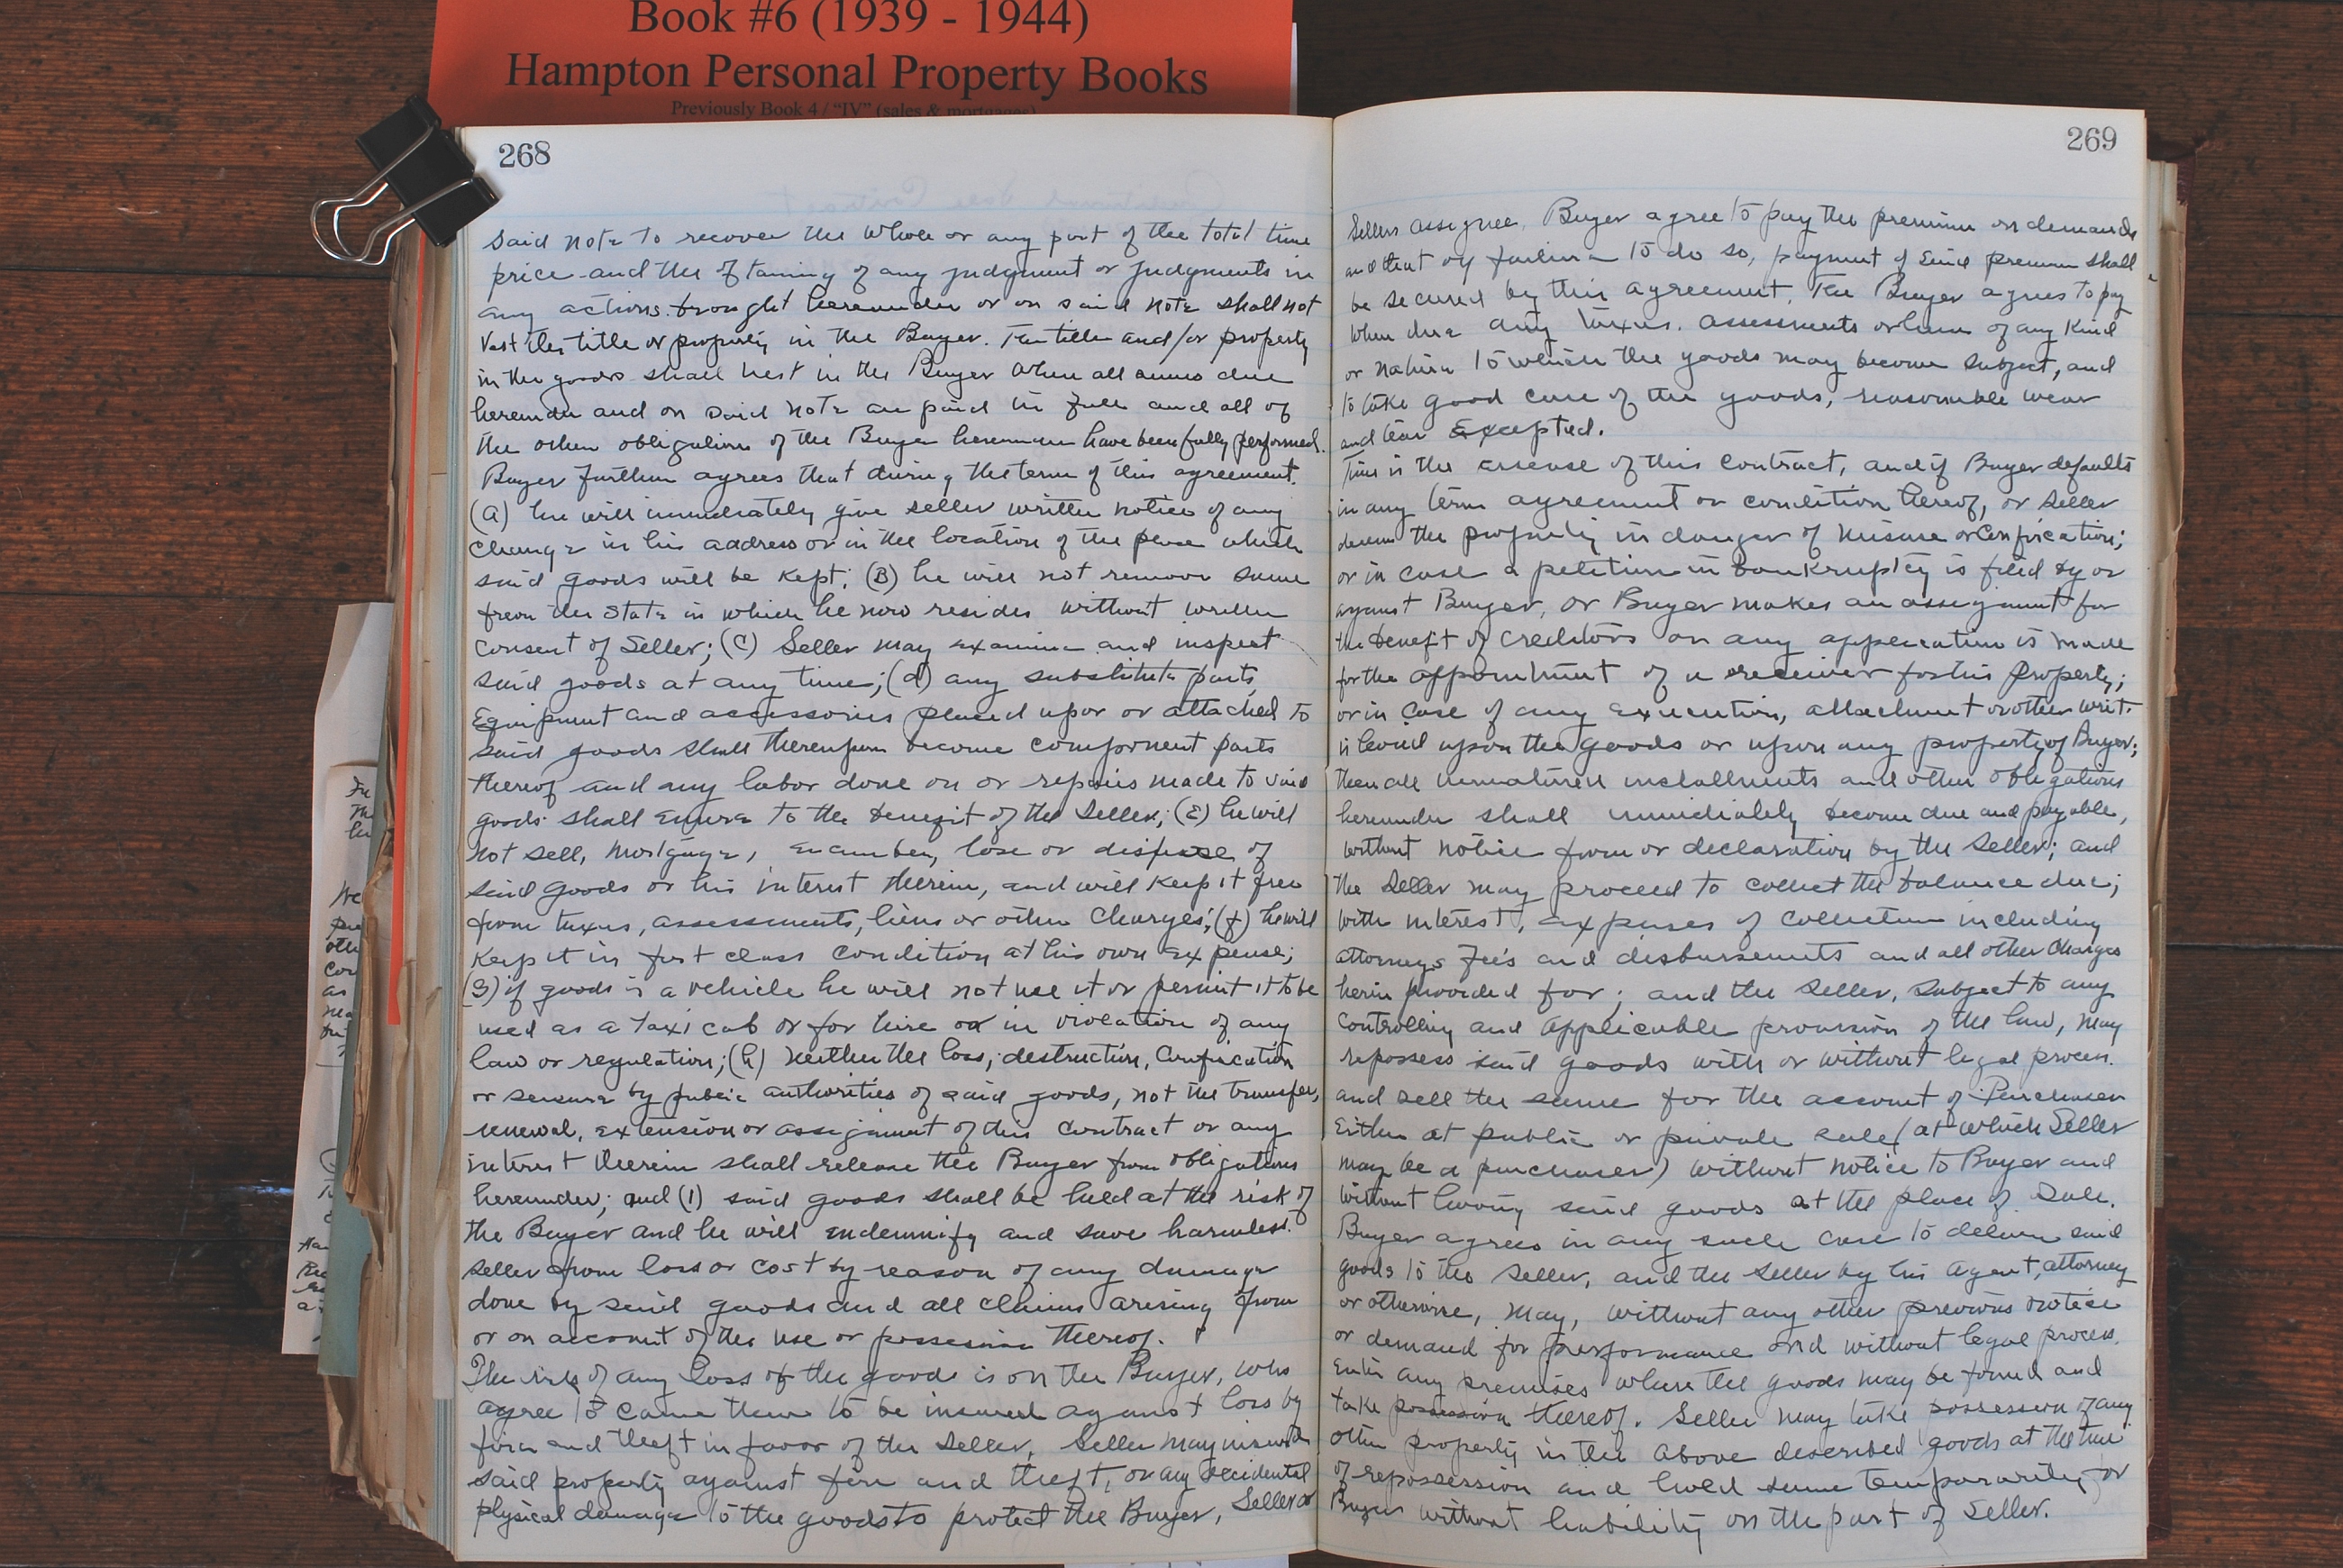 Book #6 (1939 - 1944)
Hampton Personal Property Books
Previously Book 4 / "IV" (sales & mortgages)
268
said note to recover the whole or any part of the total time
price and the oftaining of any judgment or judgments in
any actions brought hereunder or on said note shall not
Vest the title or property in the Buyer. The title and/or property
in the goods shall vest in the Buyer when all sums due
hereunder and on said note are paid in full and all of
the other obligations of the Buyer hereunder have been fully performed.
Buyer further agrees that during the term of this agreement.
(a) he will immediately give seller written notice of any
change in his address or in the location of the place which
said goods will be kept; (B) he will not remove same
from the State in which he now resides without written
consent of Seller; (C) Seller may examine and inspect
said goods at any time; (d) any substitute parts,
Equipment and accessories placed upon or attached to
said goods shall thereupon become component parts
thereof and any labor done on or repairs made to said
goods shall enure to the benefit of the Seller; (E) he will
not sell, mortgage, encumber, lose or dispose of
said goods or his interest therein, and will keep it free
from taxes, assessments, liens or other charges; (f) he will
keep it in first class condition at his own expense;
(g) if goods is a vehicle he will not use it or permit it to be
used as a taxi cab or for hire or in violation of any
law or regulation; (h) neither the loss, destruction, confiscation
or seisure by public authorities of said goods, not the transfer,
renewal, extension or assignment of this contract or any
interest therein shall release the Buyer from obligations
hereunder; and (1) said goods shall be held at the risk of
the Buyer and he will indemnify and save harmless
seller from loss or cost by reason of any damage
done by said goods and all claims arising from
or on account of the use or possession thereof.
The risk of any loss of the goods is on the Buyer, who
agree to cause them to be insured against loss by
fire and theft in favor of the Seller. Seller may insure
said property against fire and theft, or any accidental
physical damage to the goods to protect the Buyer, Seller or
269
Sellers assignee. Buyer agree to pay the premium on demands
and that of failure to do so, payment of said premium shall
be secured by this agreement. The Buyer agrees to pay
when due any taxes. assessments or liens of any kind
or nature to which the goods may become subject, and
to take good care of the goods, reasonable wear
and tear excepted.
Time is the essense of this contract, and if Buyer defaults
in any term agreement or condition hereof, or seller
deems the property in danger of misuse or confiscation;
or in case a petition in bankruptcy is filed by or
against Buyer, or Buyer makes an assignment for
the benefit of creditors or any application is made
for the appointment of a receiver for his property;
or in case of any execution, attachment or other writ.
is levied upon the goods or upon any property of Buyer;
then all unmatured installments and other obligations
hereunder shall immediately become due and payable,
without notice from or declaration by the Seller; and
the Seller may proceed to collect the balance due;
with interest, expenses of collection including
attorneys fees and disbursements and all other charges
herein provided for; and the Seller, subject to any
controlling and applicable provision of the law, may
repossess said goods with or without legal process.
and sell the same for the account of Purchaser
Either at public or private sale (at which Seller
may be a purchaser) without notice to Buyer and
without having said goods at the place of Sale.
Buyer agrees in any such case to deliver said
goods to the Seller, and the Seller by his agent, attorney
or otherwise, may, without any other previous notice
or demand for performance and without legal process.
Enter any premises where the goods may be found and
take possession thereof. Seller may take possession of any
other property in the above described goods at the time
of repossession and hold same temporarily for
Buyer without liability on the part of Seller.